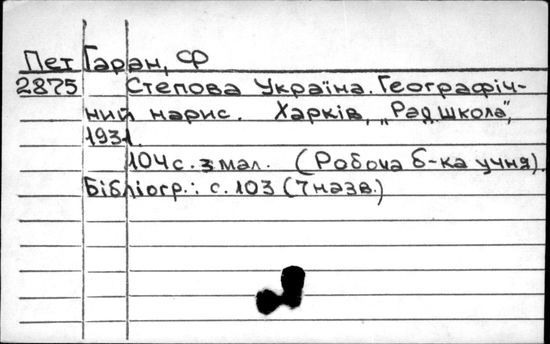 Пет Гаран, Ф
2875 Степова Україна. Географіч-
ний нарис. Харків, „Радшкола",
1931.
104 с. з мал. (Робоча б-ка учня).
Бібліогр.: с. 103 (7 назв.)